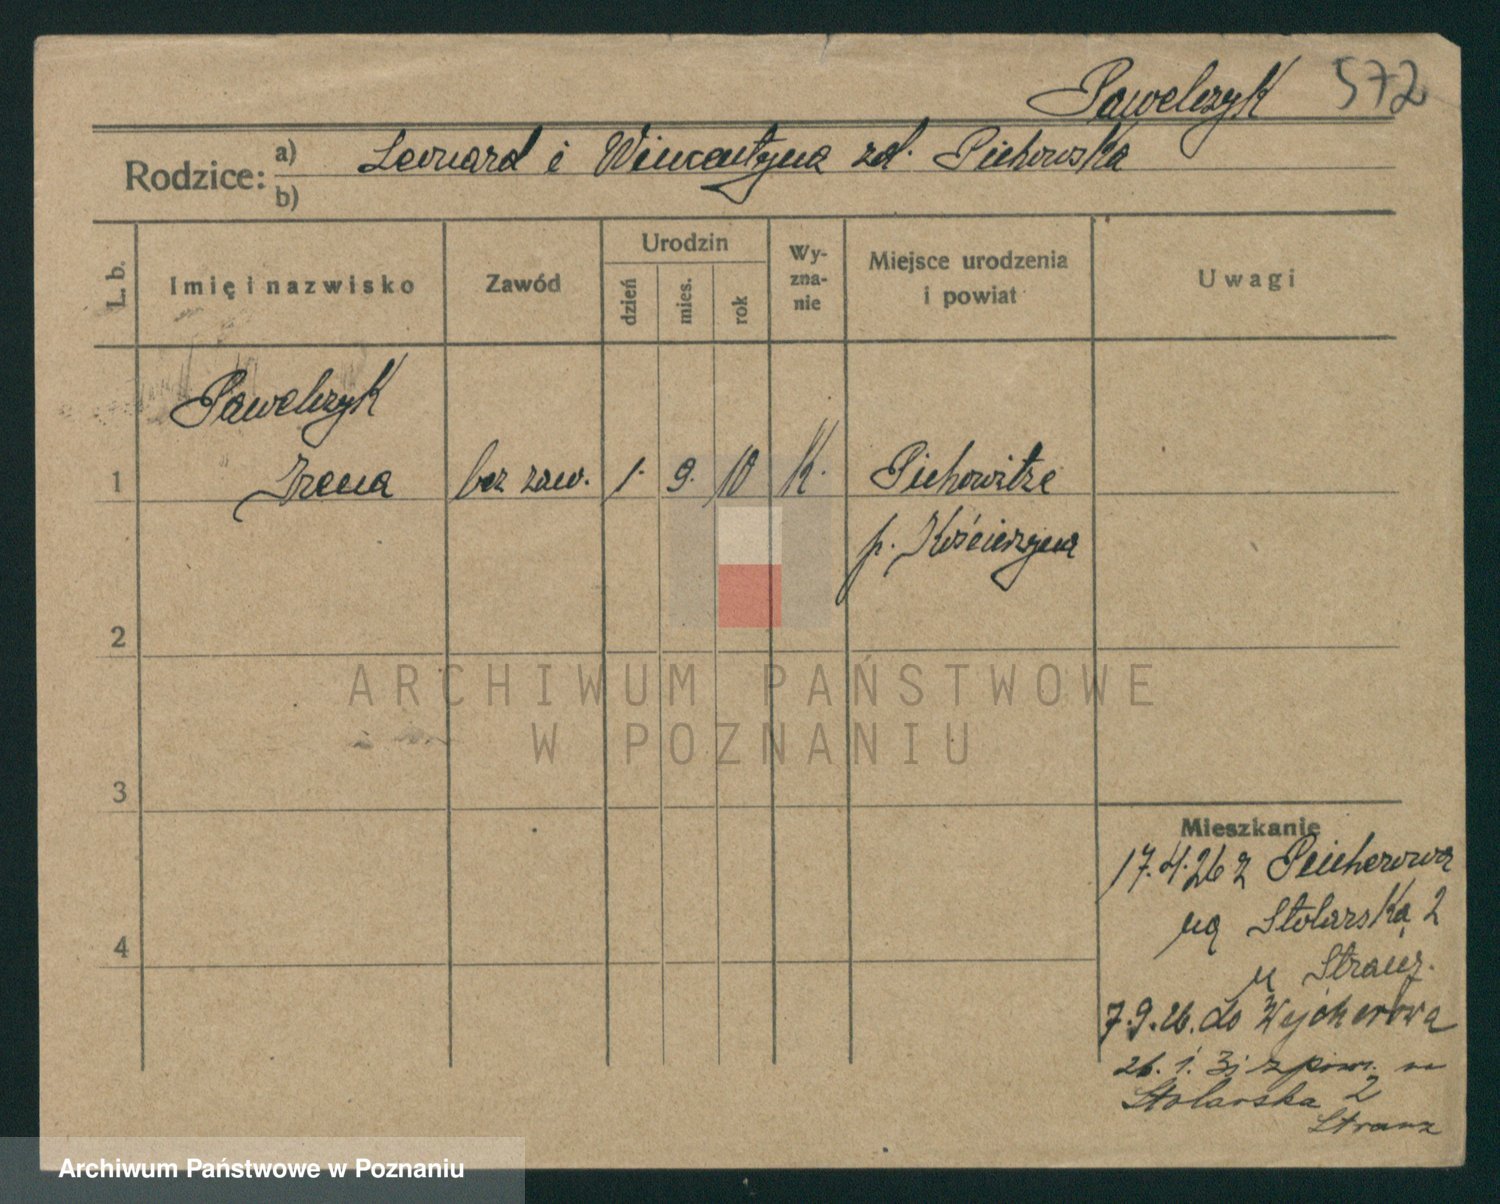 Pawelczyk 572
Rodzice: a) Leonard i Wincentyna zd. Piechowska
b)
L. b. Imię i nazwisko Zawód Urodzin dzień mies. rok Wy-zna-nie Miejsce urodzenia i powiat Uwagi
Pawelczyk
1 Irena bez zaw. 1. 9. 10 K. Piechowitze
p. Kościerzyna
2
ARCHIWUM PAŃSTWOWE
W POZNANIU
3
Mieszkanie
17.4.26 z
na Stolarską 2
u Stranz.
4
7.9.26. do Wejcherowa
26. 1. 31 z pow. na
Stolarska 2
Stranz
Archiwum Państwowe w Poznaniu